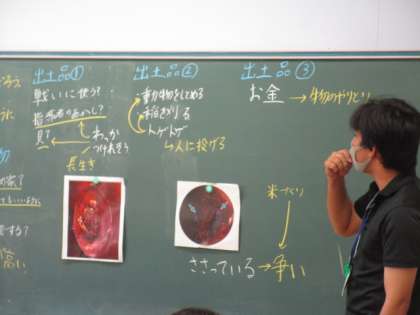 出土品①
戦いに使う?
指導者のあかし?
貝?
わっか
つけれそう
長生き
出土品②
・動物をしとめる
・稲をかりる
・トゲトゲ
↳人に投げる
出土品③
お金 → 物のやりとり
米づくり
ささっている → 争い